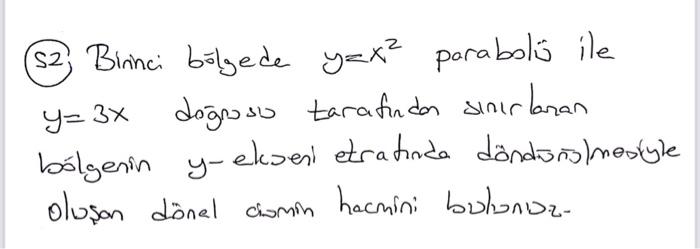 S2; Birinci bölgede y=x² parabolü ile
y=3x doğrusu tarafından sınırlanan
bölgenin y-ekseni etrafında döndürülmesiyle
oluşan dönel cismin hacmini bulunuz.